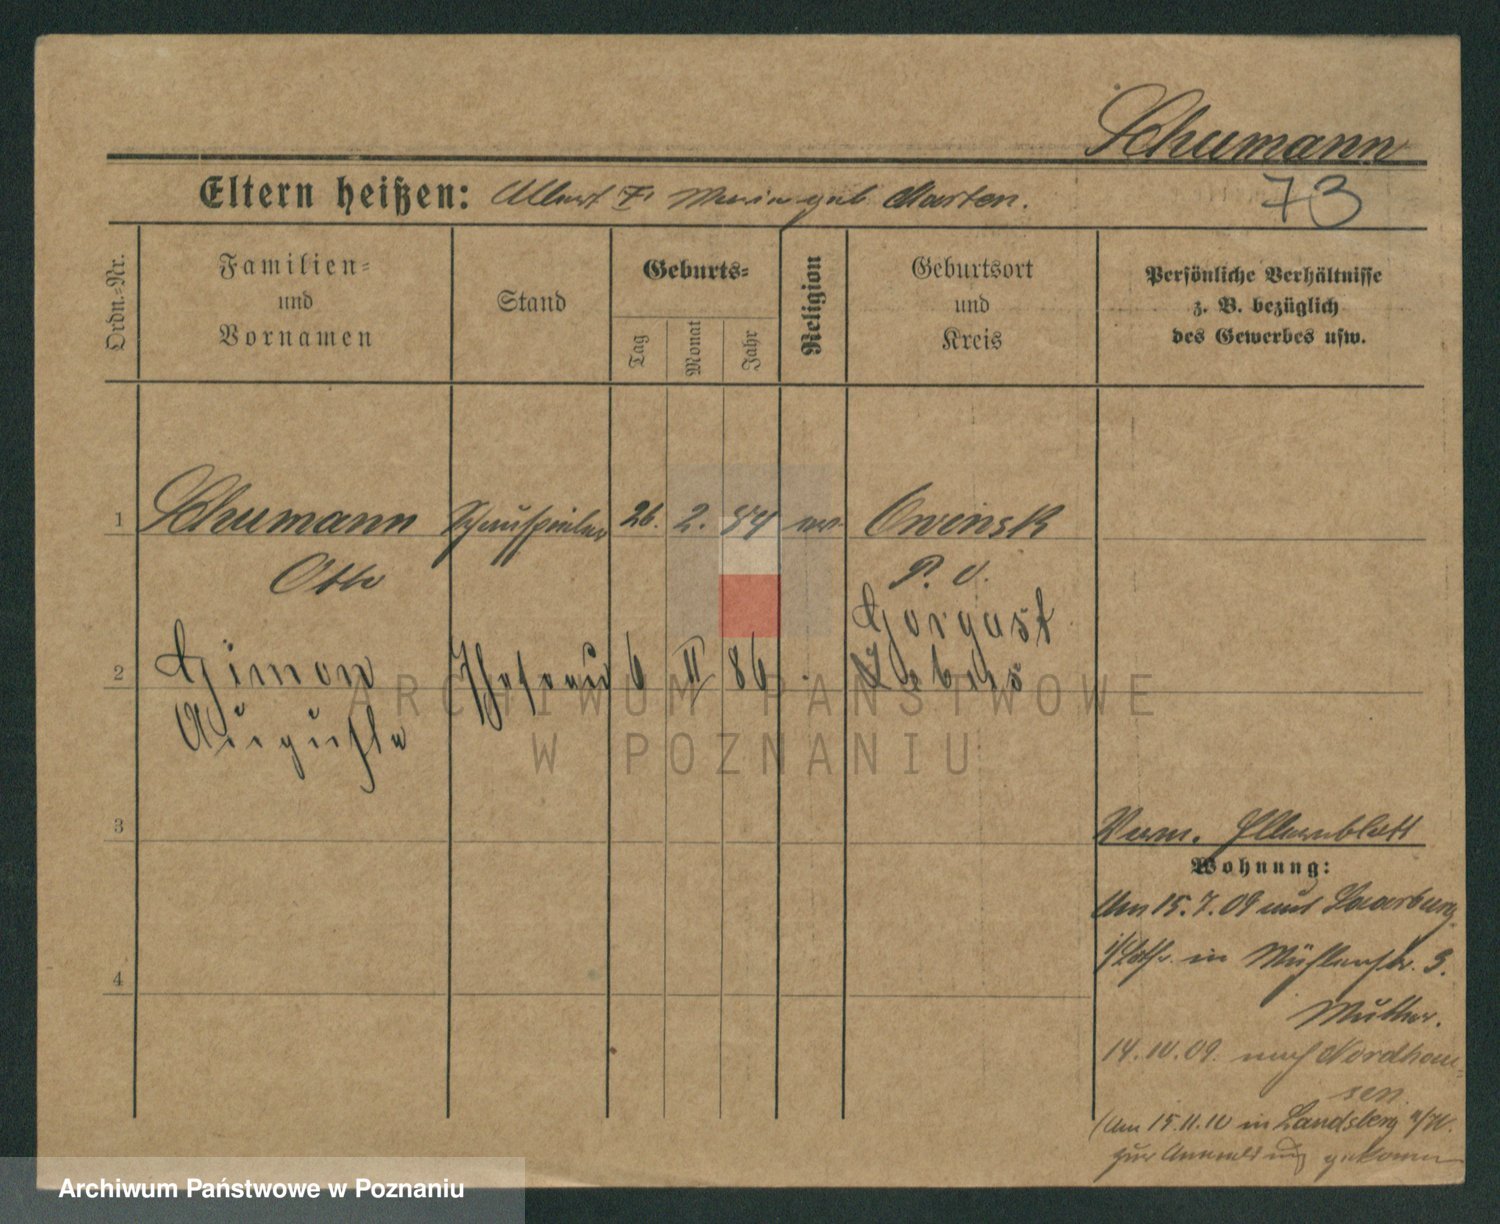 Schumann
Eltern heißen: Albert F. Marie geb. Marten.
73
Ordn.-Nr.
Familien=
und
Vornamen
Stand
Geburts=
Tag
Monat
Jahr
Religion
Geburtsort
und
Kreis
Persönliche Verhältnisse
z. B. bezüglich
des Gewerbes usw.
1 Schumann Schauspieler 26. 2. 84 ev. Owinsk
Otto P. O.
Gorgast
2 Simon Ehefrau 6 II 86 Lebus
Auguste
3
Verm. Elternblatt
Wohnung:
Am 15.7.09 aus
in Mühlenstr. 3.
4
Mutter.
14.10.09. nach Nordhau=
sen.
(Am 15.11.10 in Landsberg a/W.
zur Anmeldung gekommen
ARCHIWUM PAŃSTWOWE
W POZNANIU
Archiwum Państwowe w Poznaniu